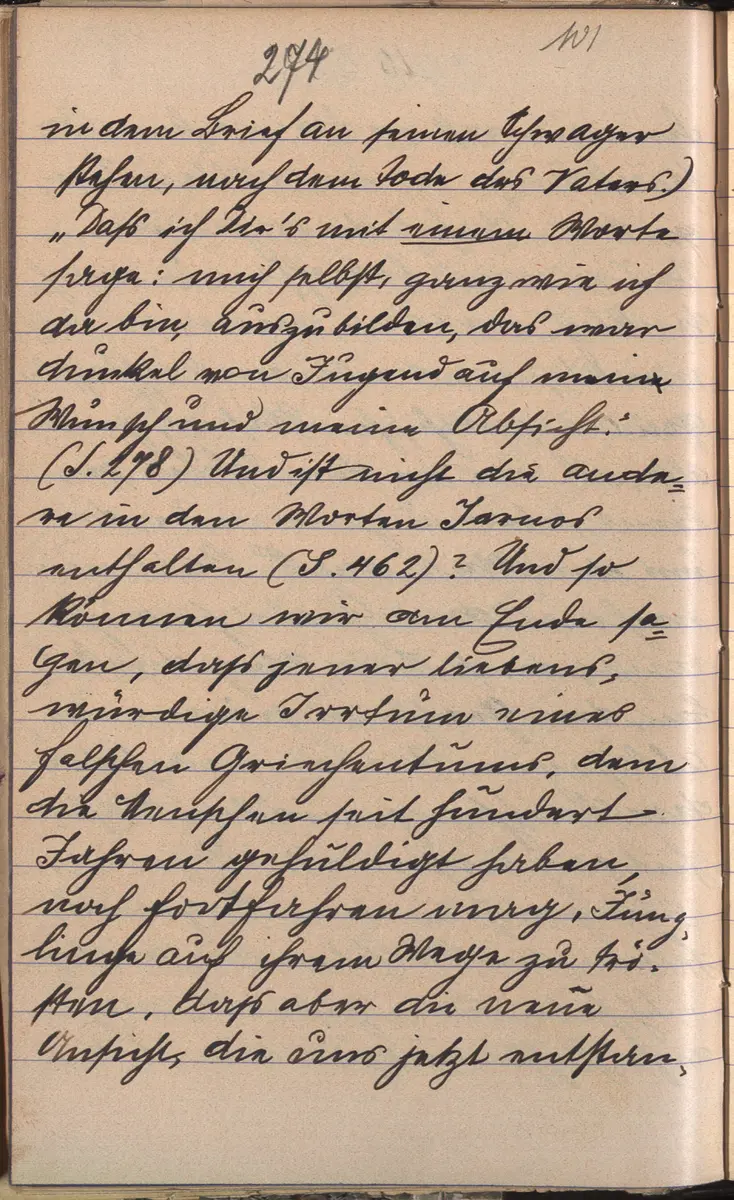 274
101
in dem Brief an seinen Schwager
stehen, nach dem Tode des Vaters.)
„Daß ich Dir's mit einem Worte
sage: mich selbst, ganz wie ich
da bin, auszubilden, das war
dunkel von Jugend auf mein
Wunsch und meine Absicht.“
(S. 278) Und ist nicht die ande=
re in den Worten Jarnos
enthalten (S. 462)? Und so
können wir am Ende sa=
gen, daß jener liebens-
würdige Irrtum eines
falschen Griechentums, dem
die Menschen seit hundert
Jahren gehuldigt haben,
noch fortfahren mag, Jüng-
linge auf ihrem Wege zu trö-
sten, daß aber die neue
Ansicht, die uns jetzt entstan-